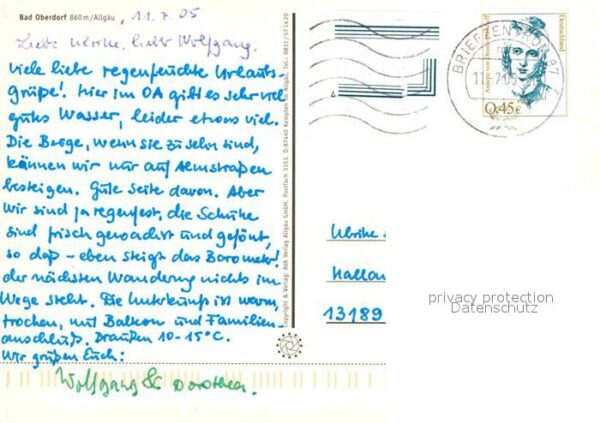 Bad Oberdorf 860m/Allgäu, 11.7.05
Liebe Ulrike, lieber Wolfgang,
viele liebe regenfeuchte Urlaubs-
grüße! Hier im OA gibt es sehr viel
gutes Wasser, leider etwas viel.
Die Berge, wenn sie zu sehn sind,
können wir nur auf Almstraßen
besteigen. Gute Seite davon. Aber
wir sind ja regenfest, die Schuhe
sind frisch gewachst und gefönt,
so daß - eben steigt das Barometer!
der nächsten Wanderung nichts im
Wege steht. Die Unterkunft ist warm,
trocken, mit Balkon und Familien-
anschluß. Draußen 10-15°C.
Wir grüßen Euch:
Wolfgang & Dorothea
Copyright & Verlag: AVA Verlag Allgäu GmbH, Postfach 3153, D-87440 Kempten im Allgäu, Tel.: 0831/571420
BRIEFZENTRUM 87
11.-7.05
Deutschland
Annette von Droste-Hülshoff
0,45€
Ulrike
13189
privacy protection
Datenschutz